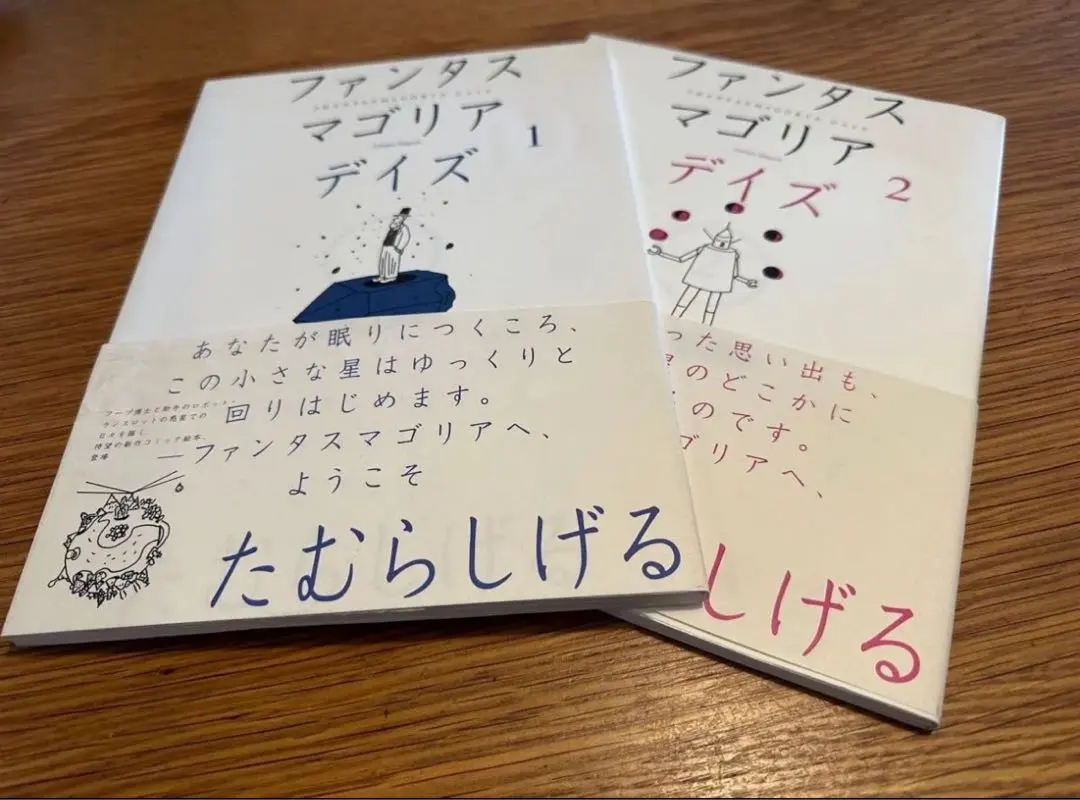 ファンタス
PHANTASMAGORIA DAYS
マゴリア
デイズ
1
あなたが眠りにつくころ、
この小さな星はゆっくりと
回りはじめます。
―ファンタスマゴリアへ、
ようこそ
フープ博士と助手のロボット、
ランスロットの惑星での
日々を描く、
待望の新作コミック絵本、
登場
たむらしげる
ファンタス
PHANTASMAGORIA DAYS
マゴリア
デイズ
2
った思い出も、
のどこかに
のです。
ゴリアへ、
しげる